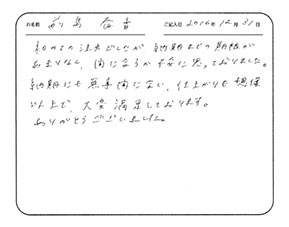 お名前 前島 ご記入日 2016年12月31日
初めての注文でしたが、納期までの期間が
あまりなく、間に合うか不安に思っておりました。
納期にも無事間に合い、仕上がりも想像
以上で、大変満足しております。
ありがとうございました。